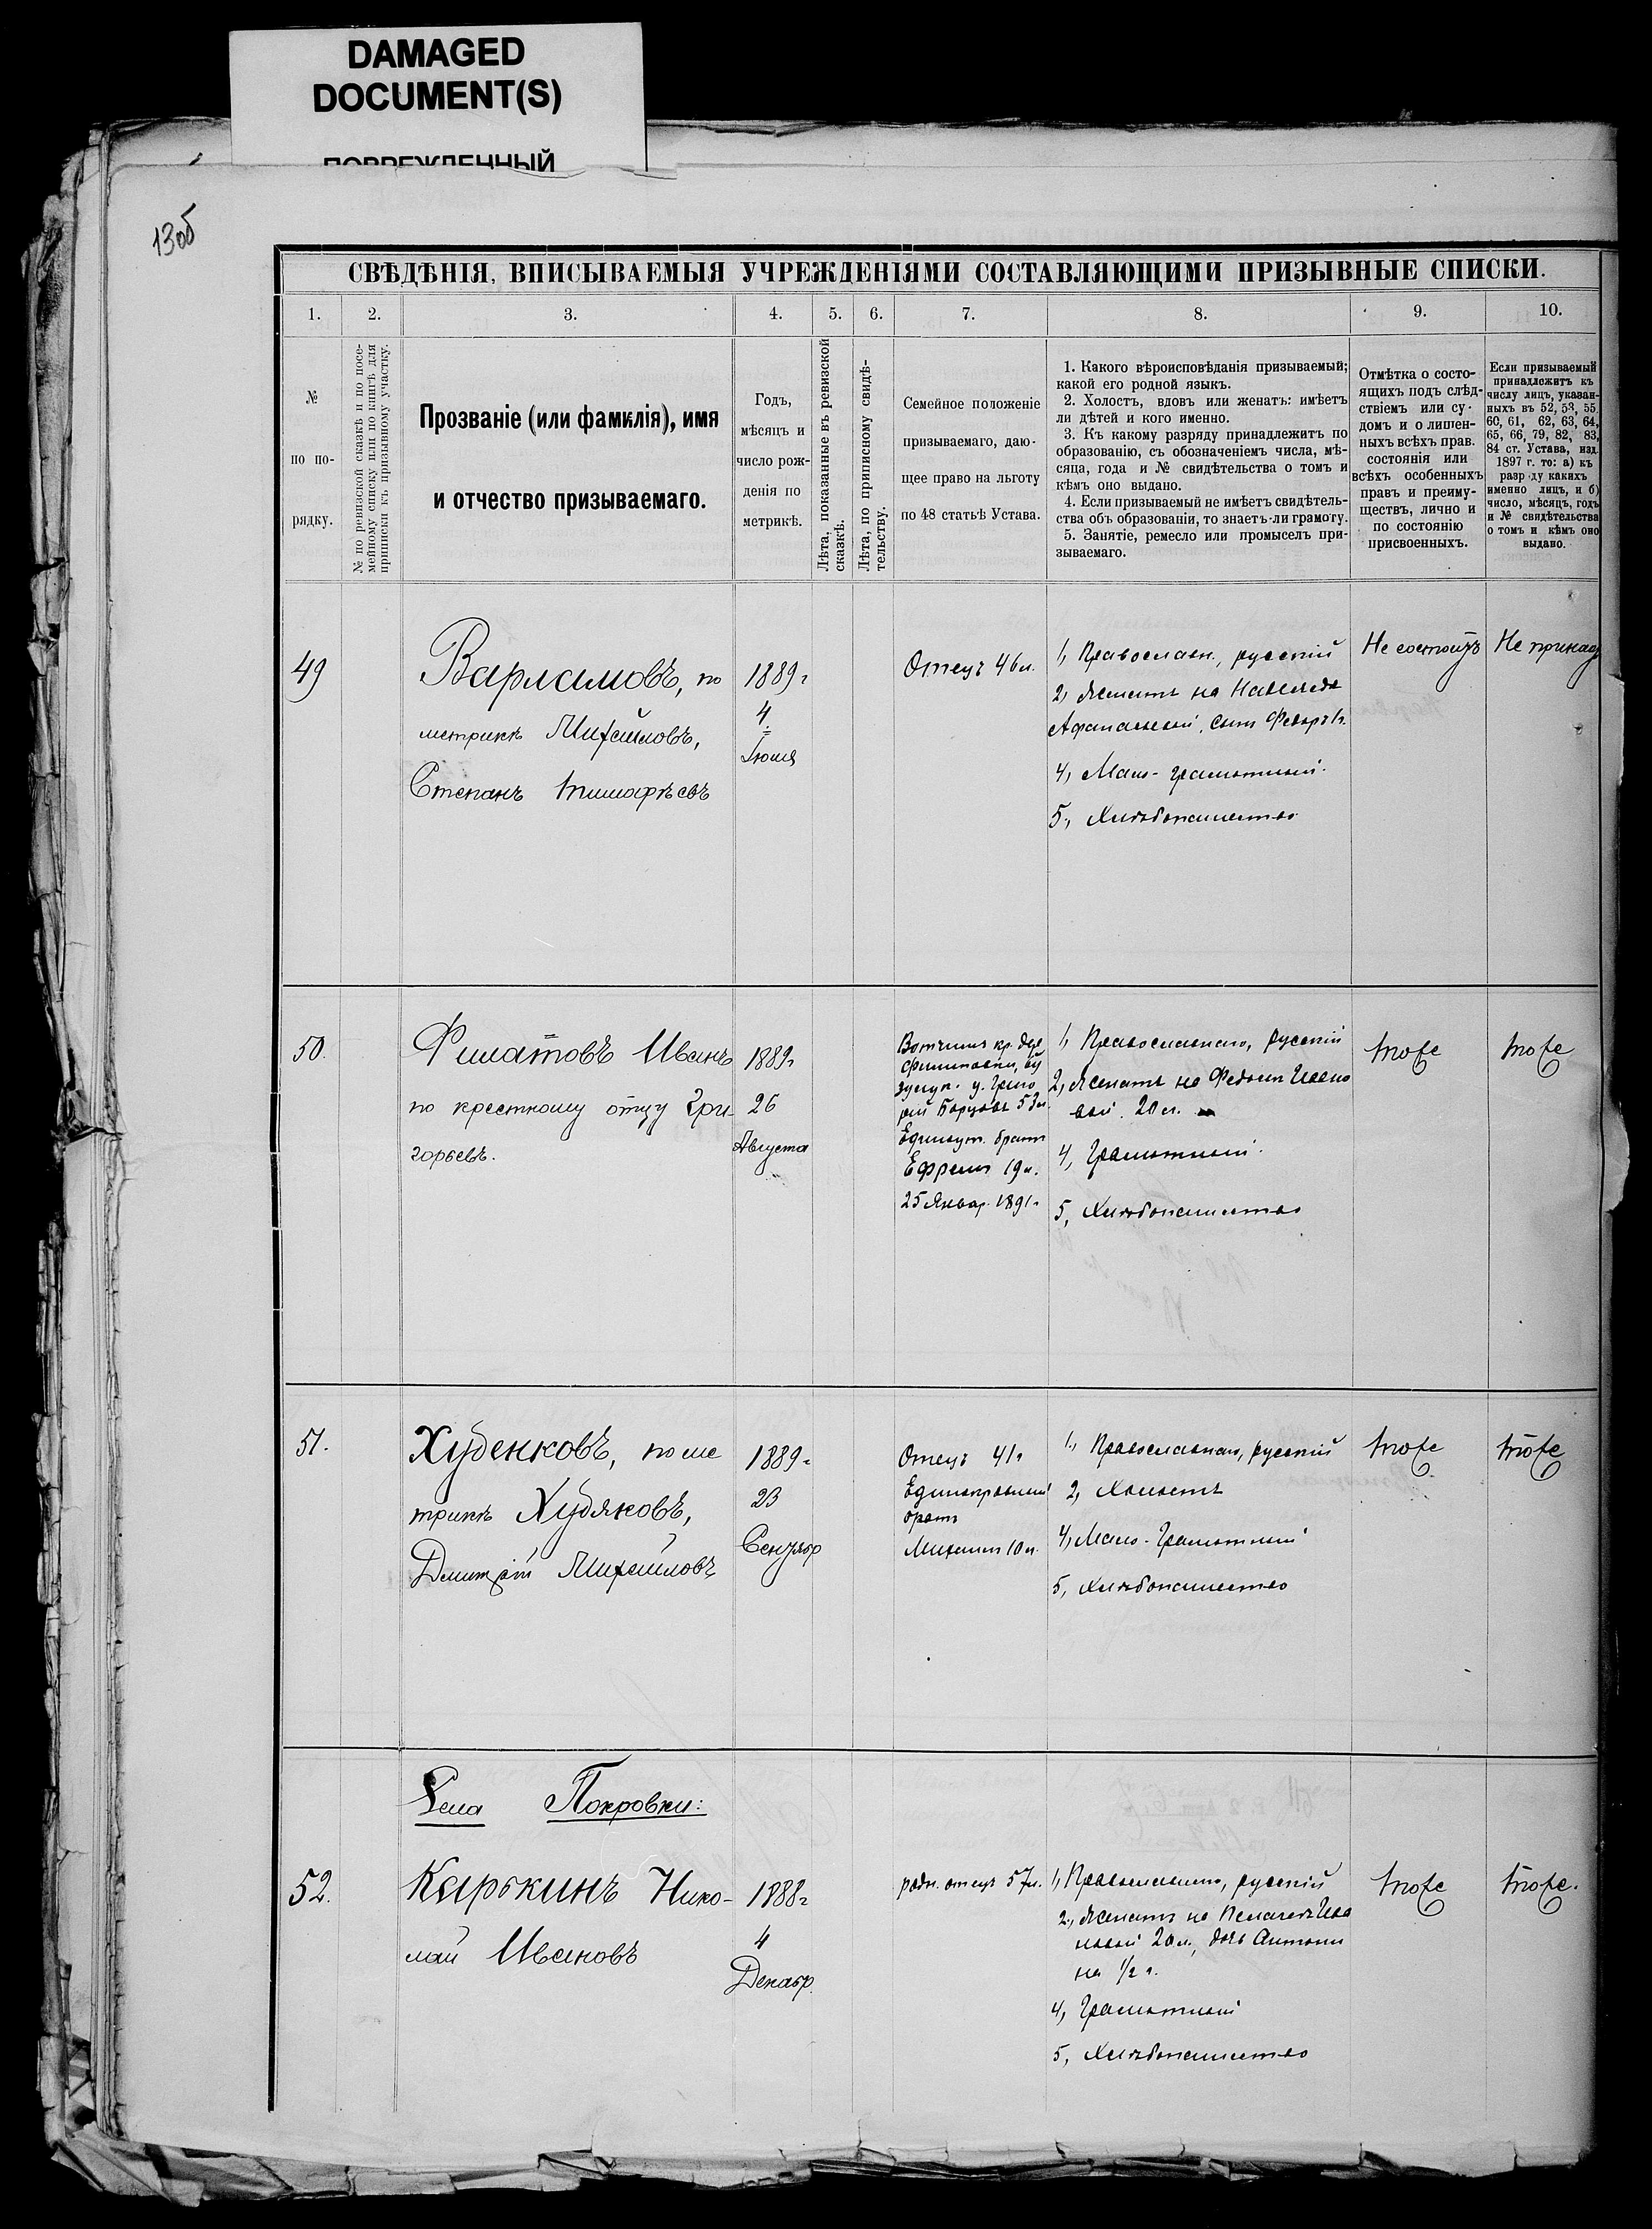 DAMAGED
DOCUMENT(S)
ПОВРЕЖДЕННЫЙ
13об
СВѢДѢНІЯ, ВПИСЫВАЕМЫЯ УЧРЕЖДЕНІЯМИ СОСТАВЛЯЮЩИМИ ПРИЗЫВНЫЕ СПИСКИ.
1. 2. 3. 4. 5. 6. 7. 8. 9. 10.
№
по по-
рядку.
№ по ревизской сказкѣ и по посе-
мейному списку или по книгѣ для
приписки къ призывному участку.
Прозваніе (или фамилія), имя
и отчество призываемаго.
Годъ,
мѣсяцъ и
число рож-
денія по
метрикѣ.
Лѣта, показанные въ ревизской
сказкѣ.
Лѣта, по приписному свидѣ-
тельству.
Семейное положеніе
призываемаго, даю-
щее право на льготу
по 48 статьѣ Устава.
1. Какого вѣроисповѣданія призываемый;
какой его родной языкъ.
2. Холостъ, вдовъ или женатъ: имѣетъ
ли дѣтей и кого именно.
3. Къ какому разряду принадлежитъ по
образованію, съ обозначеніемъ числа, мѣ-
сяца, года и № свидѣтельства о томъ и
кѣмъ оно выдано.
4. Если призываемый не имѣетъ свидѣтель-
ства объ образованіи, то знаетъ-ли грамоту.
5. Занятіе, ремесло или промыселъ при-
зываемаго.
Отмѣтка о состо-
ящихъ подъ слѣд-
ствіемъ или су-
домъ и о лишен-
ныхъ всѣхъ прав.
состоянія или
всѣхъ особенныхъ
правъ и преиму-
ществъ, лично и
по состоянію
присвоенныхъ.
Если призываемый
принадлежитъ къ
числу лицъ, указан-
ныхъ въ 52, 53, 55,
60, 61, 62, 63, 64,
65, 66, 79, 82, 83,
84 ст. Устава, изд.
1897 г. то: а) къ
разряду какихъ
именно лицъ, и б)
число, мѣсяцъ, годъ
и № свидѣтельства
о томъ и кѣмъ оно
выдано.
49
Варламовъ, по
метрикѣ Михайловъ,
Степанъ Тимофѣевъ
1889г
4
Іюля
Отецъ 46л.
1, Православн., русскій
2, Женатъ на
Афанасьевой, сынъ Федоръ
4, Мало-грамотный.
5, Хлѣбопашество
Не состоитъ
Не принад
50.
Филатовъ Иванъ
по крестному отцу Гри-
горьевъ.
1889г
26
Августа
Вотчимъ кр. дер
Филиповки, Бу
зулук. у. Григо
рій 53л.
Единоут. братъ
Ефремъ 19л.
25 Январ. 1891г
1, Православнаго, русскій
2, Женатъ на Федосьи Ивано
вой. 20л.
4, Грамотный.
5, Хлѣбопашество
тоже
тоже
51.
Худенковъ, по ме
трикѣ Худяковъ,
Дмитрій Михайловъ
1889г
23
Сентябр
Отецъ 41г
Единокровный
братъ
Михаилъ 10л.
1, Православнаго, русскій
2, Холостъ
4, Мало-грамотный
5, Хлѣбопашество
тоже
тоже
Села Покровки:
52.
Карькинъ Нико-
лай Ивановъ
1888г
4
Декабр.
родн. отецъ 57л.
1, Православнаго, русскій
2, Женатъ на Пелагеѣ Ива
новой 20л., дочь Антони
на 1/2 г.
4, Грамотный
5, Хлѣбопашество
тоже
тоже.